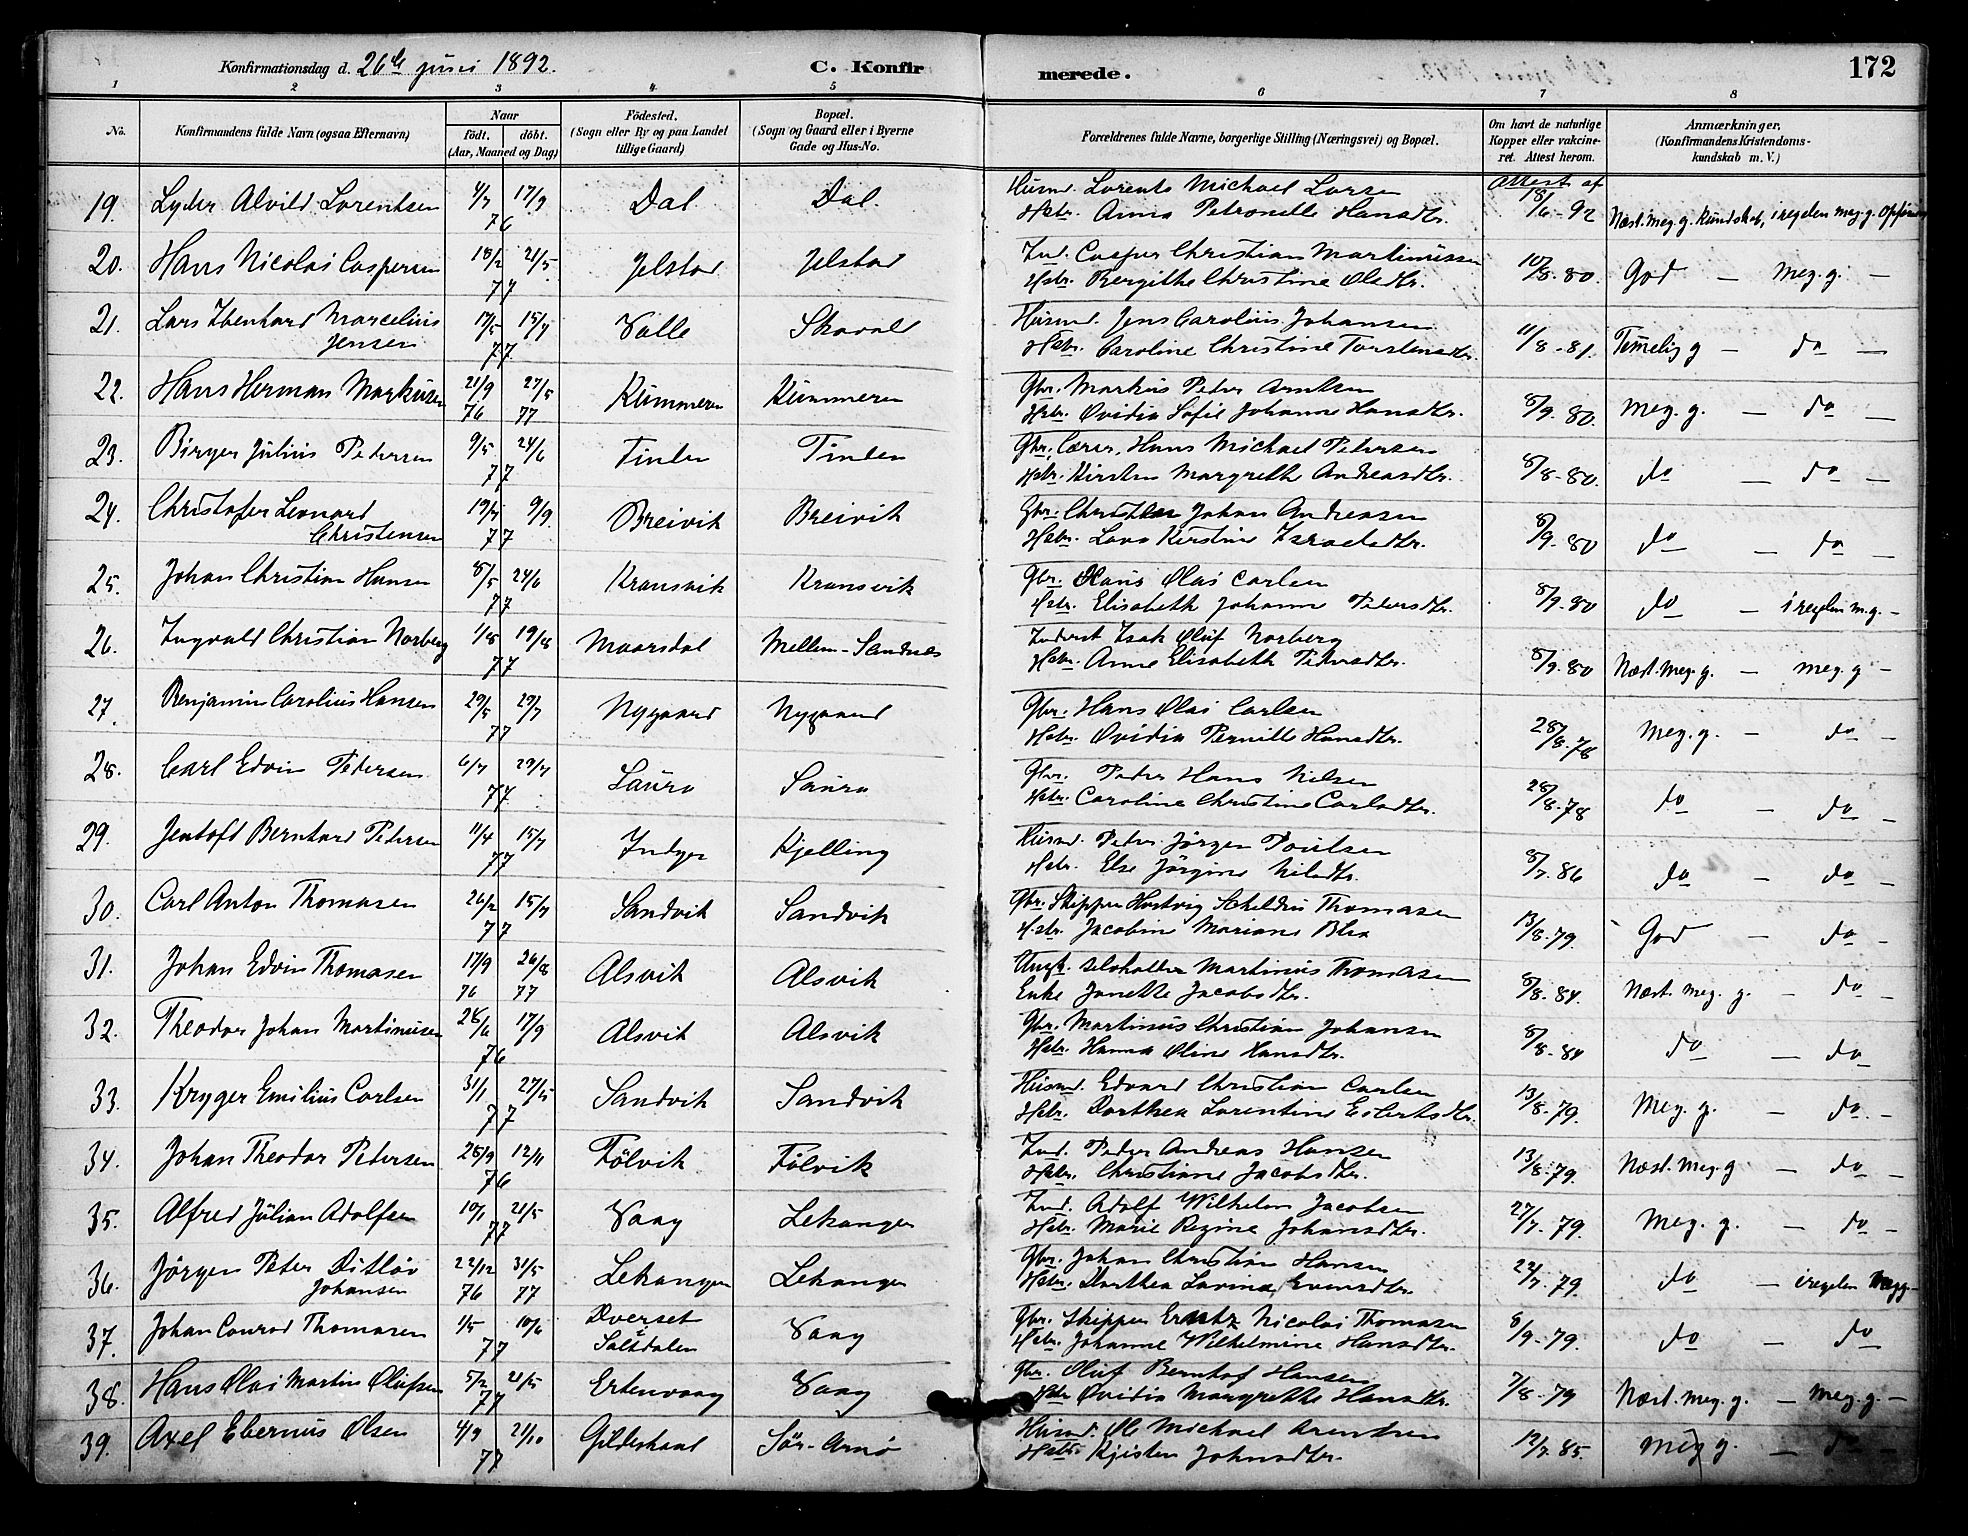 Konfirmationsdag d. 26de juni 1892. C. Konfirmerede. 172
1 2 3 4 5 6 7 8
No. Konfirmandens fulde Navn (ogsaa Efternavn) Naar født. døbt. (Aar, Maaned og Dag) Fødested. (Sogn eller By og paa Landet tillige Gaard) Bopæl. (Sogn og Gaard eller i Byerne Gade og Hus-No. Forældrenes fulde Navne, borgerlige Stilling (Næringsvei) og Bopæl. Om havt de naturlige Kopper eller vakcineret. Attest herom. Anmærkninger. (Konfirmandens Kristendomskundskab m. V.)
19. Lyder Alvild Lorentsen 4/7 17/9 76 Dal Dal Husmd. Lorents Michael Larsen Attest af
Hstr. Anna Petronelle Hansdtr. 18/6-92 Næst. meg. g. kundskab, i regelen meg. g. Opførsel
20. Hans Nicolai Caspersen 18/2 21/5 77 Jelstad Jelstad Ind. Casper Christian Martinussen
Hstr. Bergithe Christine Olsdtr. 10/8-80. God — Meg. g. —
21. Lars Ibenhard Marcelius Jensen 17/5 15/7 77 Valle Skavold Husmd. Jens Carolius Johansen
Hstr. Caroline Christine Torstensdtr. 11/8-81. Temmelig g — do —
22. Hans Herman Markusen 21/9 76 27/5 77 Kummeren Kummeren Gbr. Markus Peter Arntsen
Hstr. Ovidia Sofie Johanne Hansdtr. 8/9-80. Meg. g. — do —
23. Birger Julius Petersen 9/5 24/6 77 Finden Tinden Gbr. Lærer, Hans Michael Petersen
Hstr. Kirsten Margrethe Andreasdtr. 8/8-80. do — do —
24. Christofer Leonard Christensen 19/7 9/9 77 Breivik Breivik Gbr. Christen Johan Andreasen
Hstr. Lava Kirstine Israelsdtr. 8/9-80 do — do —
25. Johan Christian Hansen 8/5 24/6 77 Kransvik Kransvik Gbr. Hans Olai Carlsen
Hstr. Elisabeth Johanne Petersdtr. 8/9-80 do — i regelen m.g. —
26. Ingvald Christian Norberg 1/8 19/8 77 Maarsdal Mellem-Sandnes Inderst Isak Oluf Norberg
Hstr. Anne Elisabeth Petersdtr. 8/9-80 Næst. meg. g. — meg. g —
27. Benjamin Carolius Hansen 29/5 29/7 77 Nygaard Nygaard Gbr. Hans Olai Carlsen
Hstr. Ovidia Pernille Hansdtr. 28/8-78 Meg. g. — do —
28. Carl Edvin Petersen 6/7 29/7 77. Saura Saura Gbr. Peder Hans Nielsen
Hstr. Caroline Christine Carlsdtr. 28/8-78 do — do —
29. Jentoft Bernhard Petersen 11/4 15/7 77 Indyr Kjelling Husmd. Peter Jørgen Poulsen
Hstr. Else Jørgine Nilsdtr. 8/7-86 do — do —
30. Carl Anton Thomasen 26/2 15/7 77 Sandvik Sandvik Gbr. Skipper Hartvig Scheldru Thomasen
Hstr. Jacobine Mariane Blix 13/8-79. God — do —
31. Johan Edvin Thomasen 17/9 76 26/8 77 Alsvik Alsvik Martinus Thomasen
Enke Janette Jacobsdtr. 8/8-84. Næst. meg. g. — do —
32. Theodor Johan Martinusen 28/6 17/9 76 Alsvik Alsvik Gbr. Martinus Christian Johansen
Hstr. Hanna Oline Hansdtr. 8/8-84 do — do —
33. Kryger Emilius Carlsen 31/1 27/5 77 Sandvik Sandvik Husmd. Edvard Christian Carlsen
Hstr. Dorthea Lorentine Eilertsdtr. 13/8-79. Meg. g. — do —
34. Johan Theodor Petersen 28/9 12/11 76 Følvik Følvik Ind. Peder Andreas Hansen
Hstr. Christiane Jacobsdtr. 13/8-79. Næst. meg. g — do —
35. Alfred Julian Adolfsen 10/1 21/5 77 Vaag Lekanger Ind. Adolf Wilhelm Jacobsen
Hstr. Marie Regine Johansdtr. 27/7-79. Meg. g. — do —
36. Jørgen Peter Ditløv Johansen 22/12 76 31/5 77 Lekanger Lekanger Gbr. Johan Christian Hansen
Hstr. Dorthea Lavina Evensdtr. 22/7-79. do — i regelen megg. —
37. Johan Conrad Thomasen 1/5 10/6 77 Dverset Saltdalen Vaag Gbr. Skipper Erntz Nicolai Thomasen
Hstr. Johanne Wilhelmine Hansdtr. 8/9-79. do — do
38. Hans Olai Martin Olufsen 5/2 21/5 77 Ertenvaag Vaag Gbr. Oluf Berntof Hansen
Hstr Ovidia Margrethe Hansdtr. 7/8-79 Næst. meg. g. — meg. g. —
39. Axel Ebernus Olsen 4/9 21/10 77 Gildeskaal Sør-Arnø Husmd. Ole Michael Arentsen
Hstr Kjisten Johnsdtr. 12/7-85. Meg g. — do —